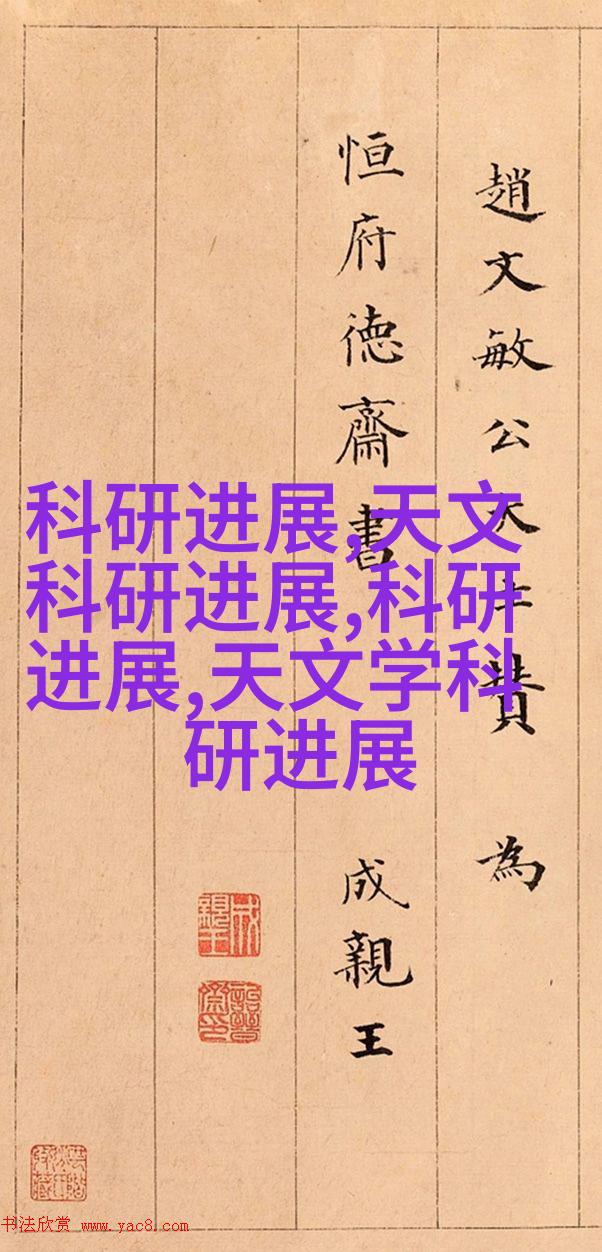 趙文敏公大士贊 為
恒府德齋書 成親王
科研进展,天文
科研进展,科研
进展,天文学科
研进展
成親王
詒晉齋印
书法欣赏 www.yac8.com